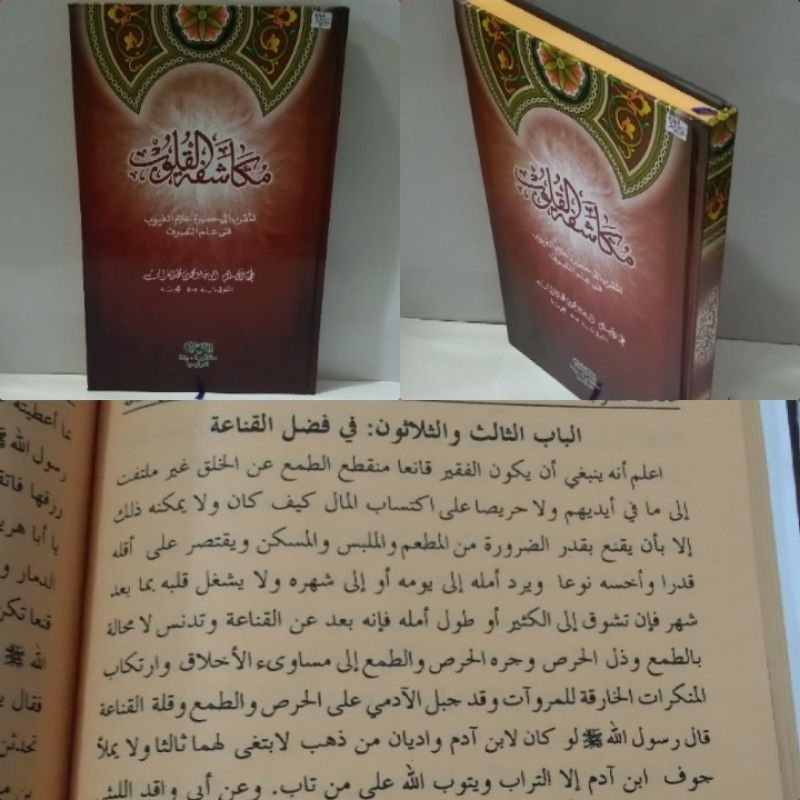 مكاشفة القلوب
المقرب إلى حضرة علام الغيوب
في علم التصوف
مكاشفة القلوب
المقرب إلى حضرة علام الغيوب
في علم التصوف
الباب الثالث والثلاثون: في فضل القناعة
اعلم أنه ينبغي أن يكون الفقير قانعا منقطع الطمع عن الخلق غير ملتفت
إلى ما في أيديهم ولا حريصا على اكتساب المال كيف كان ولا يمكنه ذلك
إلا بأن يقنع بقدر الضرورة من المطعم والملبس والمسكن ويقتصر على أقله
قدرا وأخسه نوعا ويرد أمله إلى يومه أو إلى شهره ولا يشغل قلبه بما بعد
شهر فإن تشوق إلى الكثير أو طول أمله فإنه بعد عن القناعة وتدنس لا محالة
بالطمع وذل الحرص وجره الحرص والطمع إلى مساوىء الأخلاق وارتكاب
المنكرات الخارقة للمروآت وقد جبل الآدمي على الحرص والطمع وقلة القناعة
قال رسول الله ﷺ لو كان لابن آدم واديان من ذهب لابتغى لهما ثالثا ولا يملأ
جوف ابن آدم إلا التراب ويتوب الله على من تاب. وعن أبي واقد الليثي
مما أعطيته
رسول الله ﷺ
رزقها فاتق
يا أبا هريرة
الدمار و
قنعا تكن
الله ﷺ
فقال
تحدثن